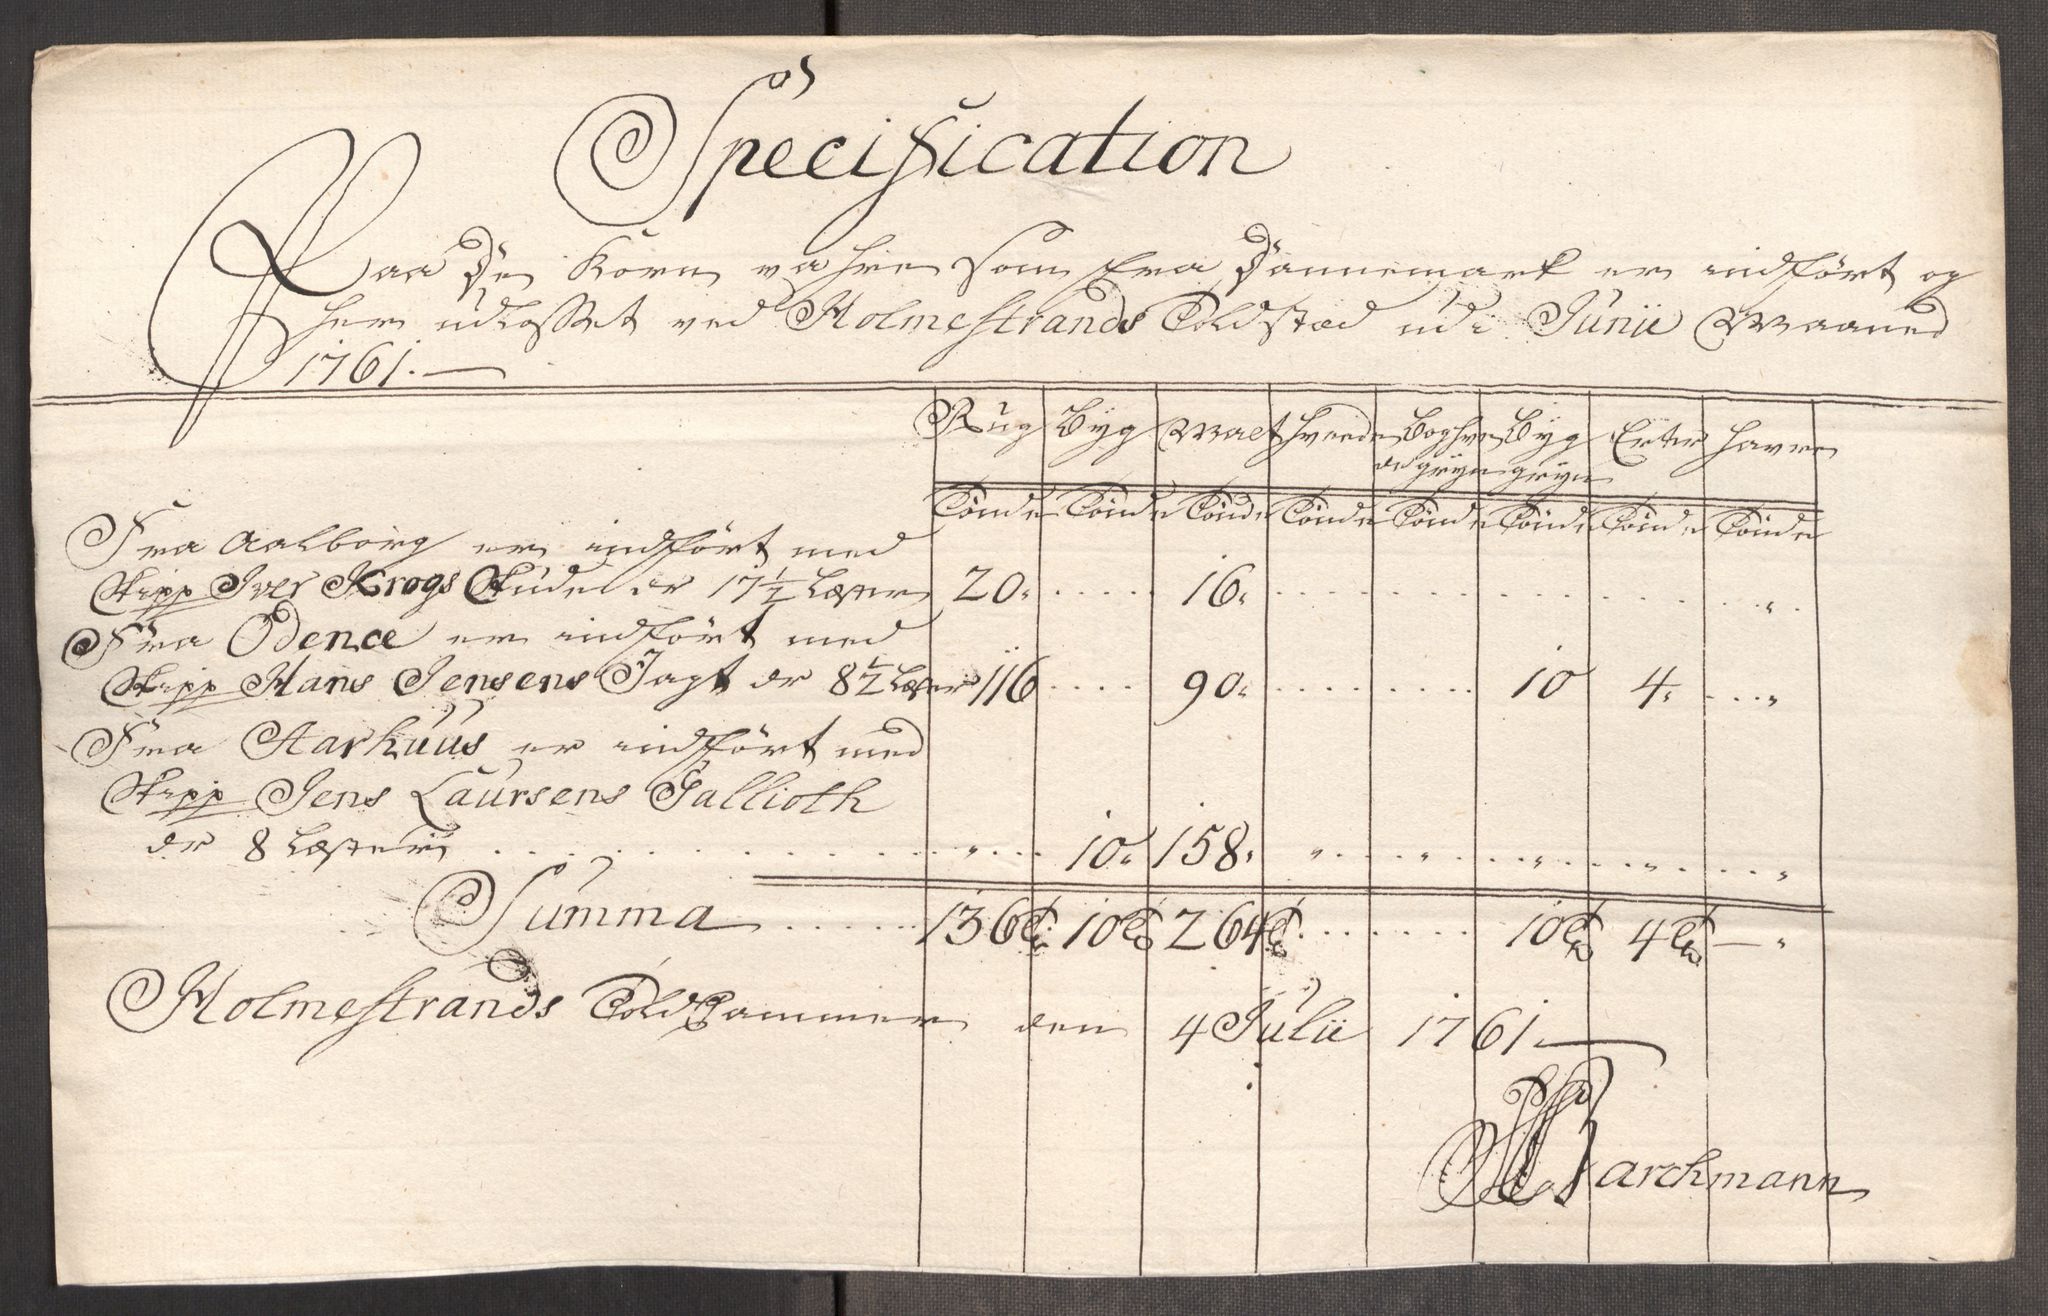 Specification
Paa De Korn vahre som fra Dannemark er indført og
her udlosset ved Holmestrands Toldstæd udi Junii Maaned
1761.
Rug Byg Malt Hvede Boghve Byg Erter Havre
de gryn gryn
Tønde Tønde Tønde Tønde Tønde Tønde Tønde Tønde
Fra Aalborg er indført med
Skipp Iver Krogs Skude dr 17 1/2 Læster 20. 16.
Fra Odence er indført med
Skipp Hans Jensens Jagt dr 8 1/2 Læster 116 90. 10 4.
Fra Aarhuus er indført med
Skipp Jens Laursens Gallioth
dr 8 Læster 10. 158.
Summa 136 Tr 10 Tr 264 Tr 10 Tr 4 Tr
Holmestrands Toldkammer den 4 Julii 1761
Barchmann